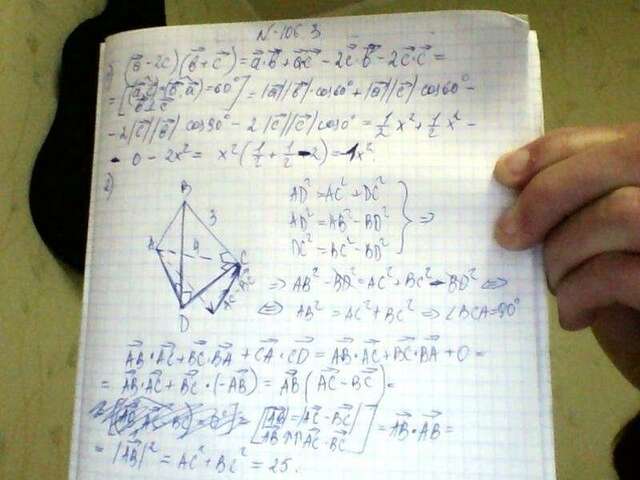 N-106 3
б) (a⃗ - 2c⃗)(b⃗ + c⃗) = a⃗·b⃗ + a⃗c⃗ - 2c⃗·b⃗ - 2c⃗·c⃗ =
= |a⃗||b⃗|·cos60° + |a⃗||c⃗| cos60° -
- 2|c⃗||b⃗| cos90° - 2|c⃗||c⃗| cos0° = 1/2 x² + 1/2 x² -
- 0 - 2x² = x²(1/2 + 1/2 - 2) = -1x²
2)
B
3
A
4
C
D
AD² = AC² + DC²
AD² = AB² - BD²
DC² = BC² - BD²
} ⇒
⇒ AB² - BD² = AC² + BC² - BD² ⇔
⇔ AB² = AC² + BC² ⇒ ∠BCA = 90°
AB⃗·AC⃗ + BC⃗·BA⃗ + CA⃗·CD⃗ = AB⃗·AC⃗ + BC⃗·BA⃗ + 0 =
= AB⃗·AC⃗ + BC⃗·(-AB⃗) = AB⃗(AC⃗ - BC⃗) =
= [|AB⃗| = |AC⃗ - BC⃗| = AB⃗·AB⃗ =
AB⃗ ↑↑ AC⃗ - BC⃗]
= |AB⃗|² = AC² + BC² = 25.